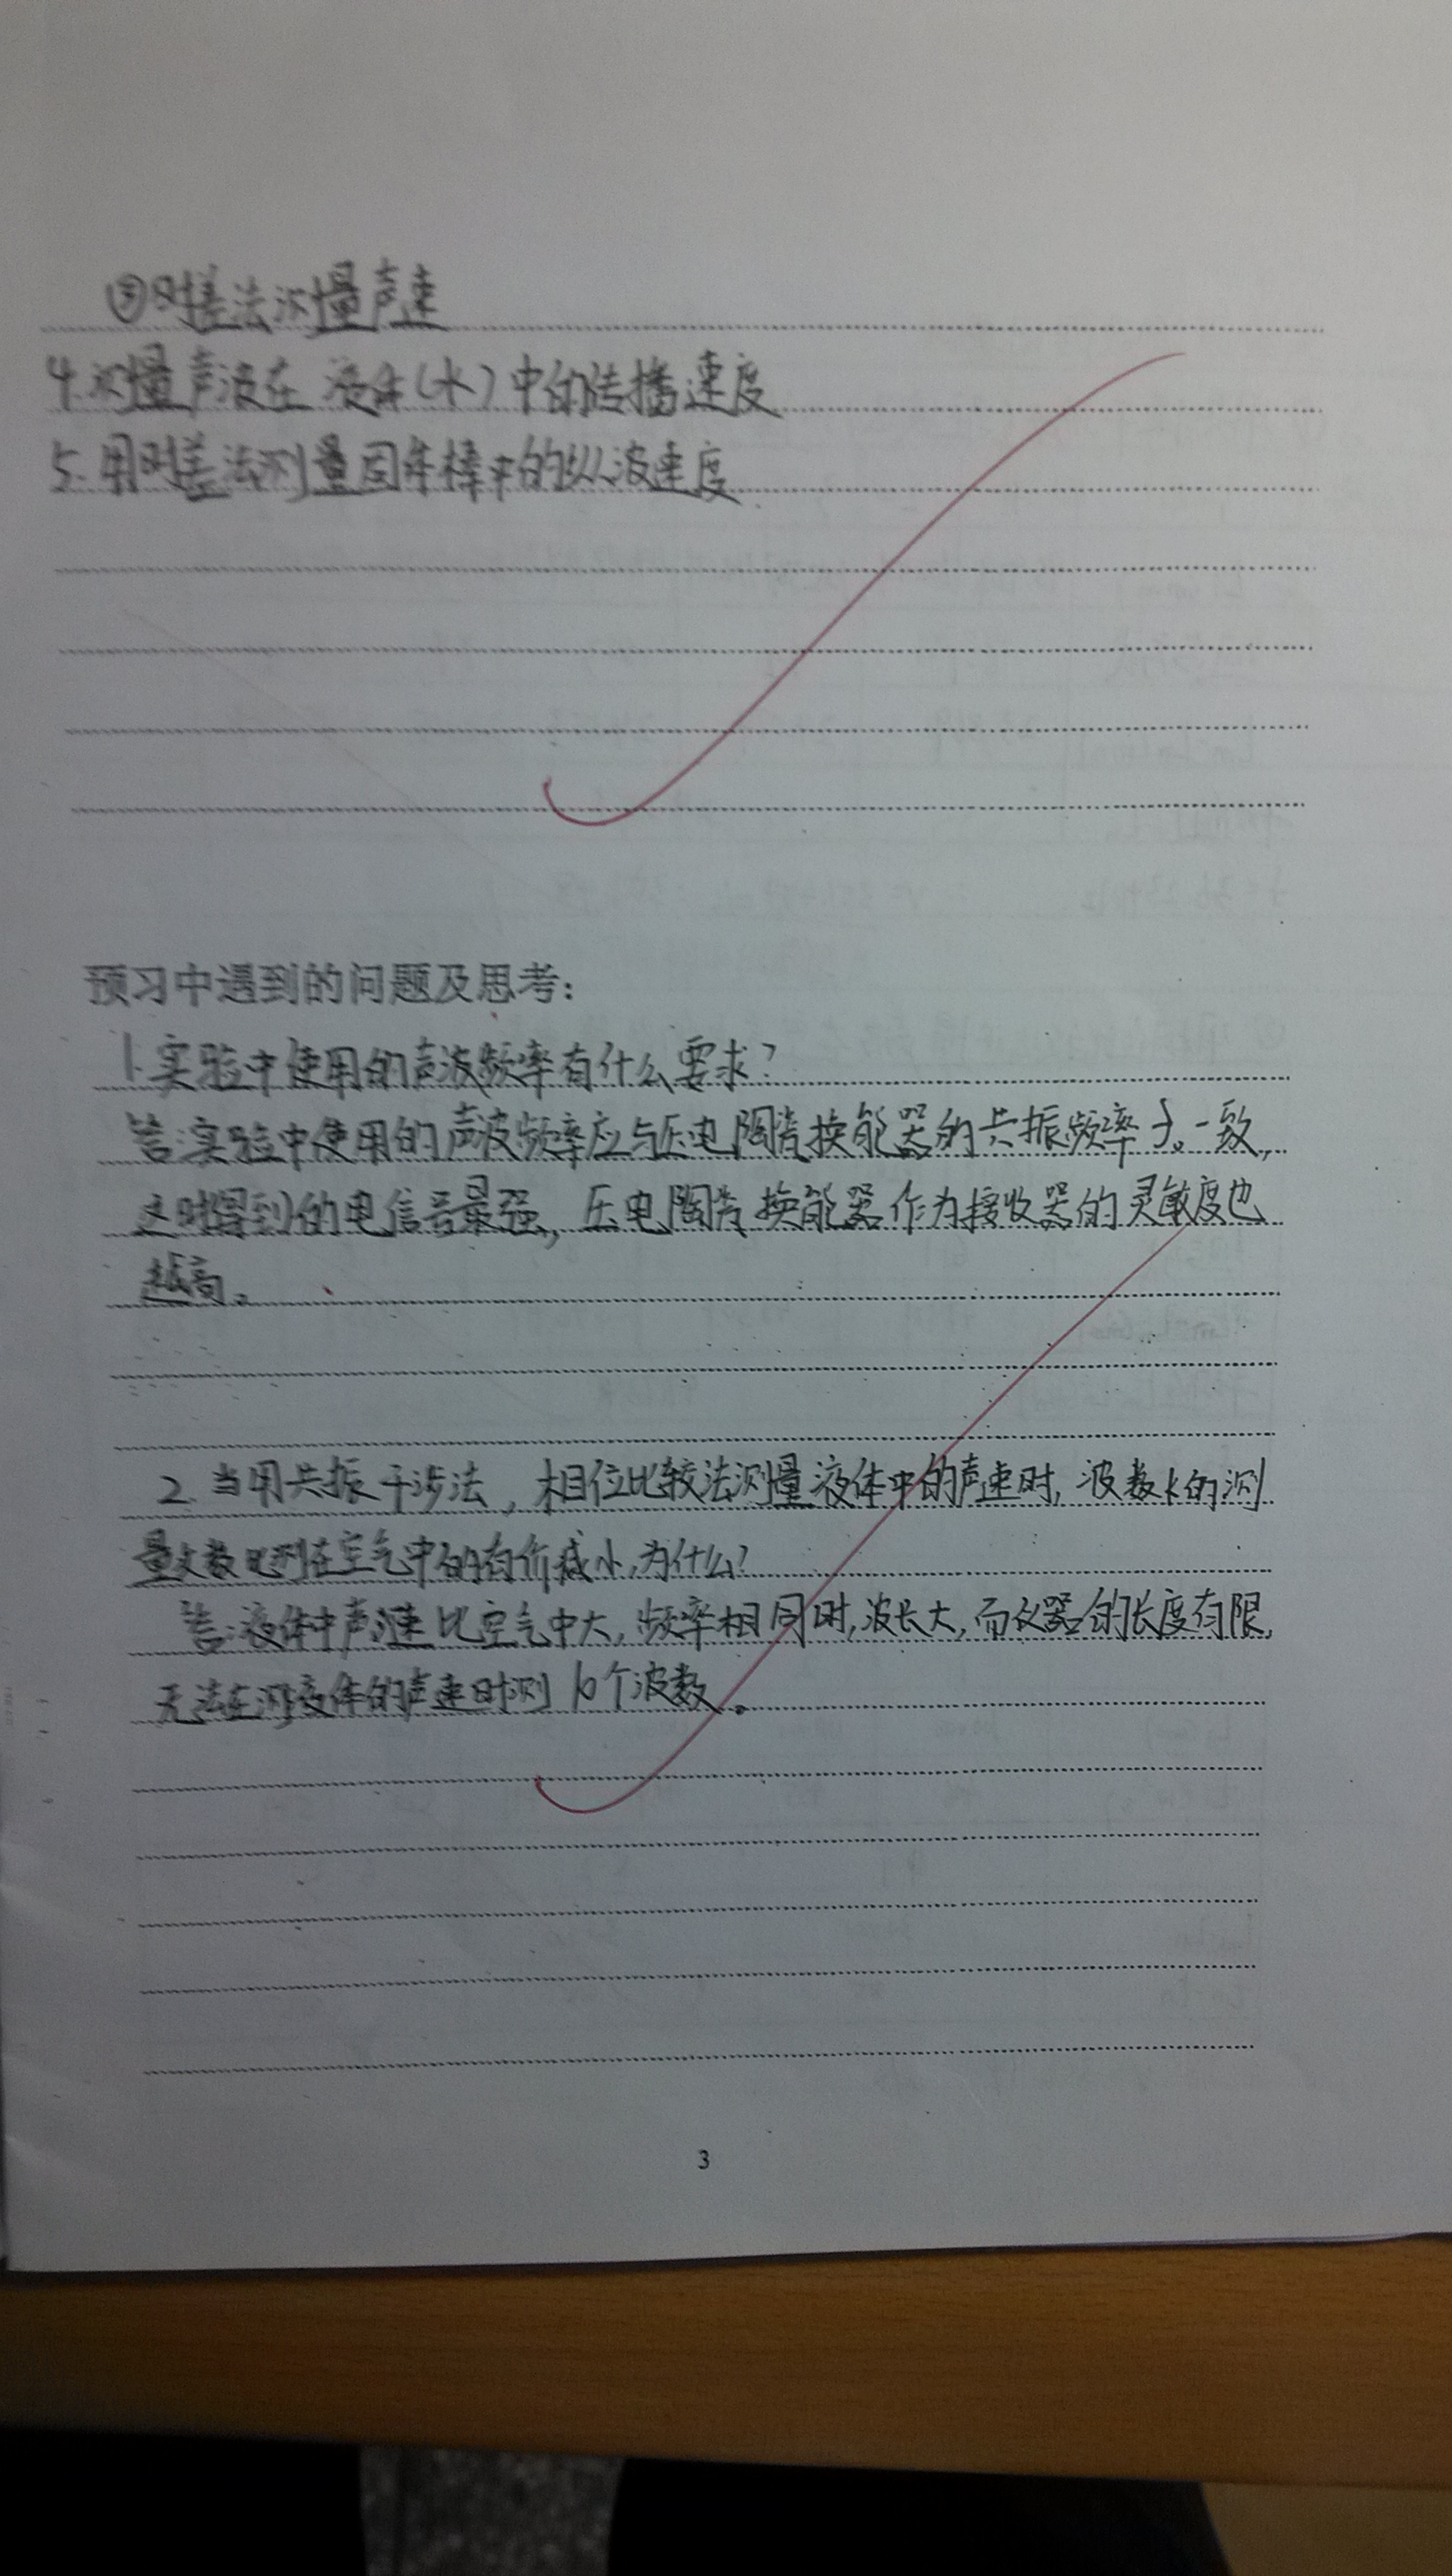 ③时差法测量声速
4.测量声波在液体(水)中的传播速度
5.用时差法测量固体棒中的纵波速度
预习中遇到的问题及思考：
1.实验中使用的声波频率有什么要求?
答:实验中使用的声波频率应与压电陶瓷换能器的共振频率f。一致,
这时得到的电信号最强,压电陶瓷换能器作为接收器的灵敏度也
越高。
2.当用共振干涉法,相位比较法测量液体中的声速时,波数k的测
量次数比测在空气中的有所减小,为什么?
答:液体中声速比空气中大,频率相同时,波长大,而仪器的长度有限,
无法在测液体的声速时测10个波数。
3